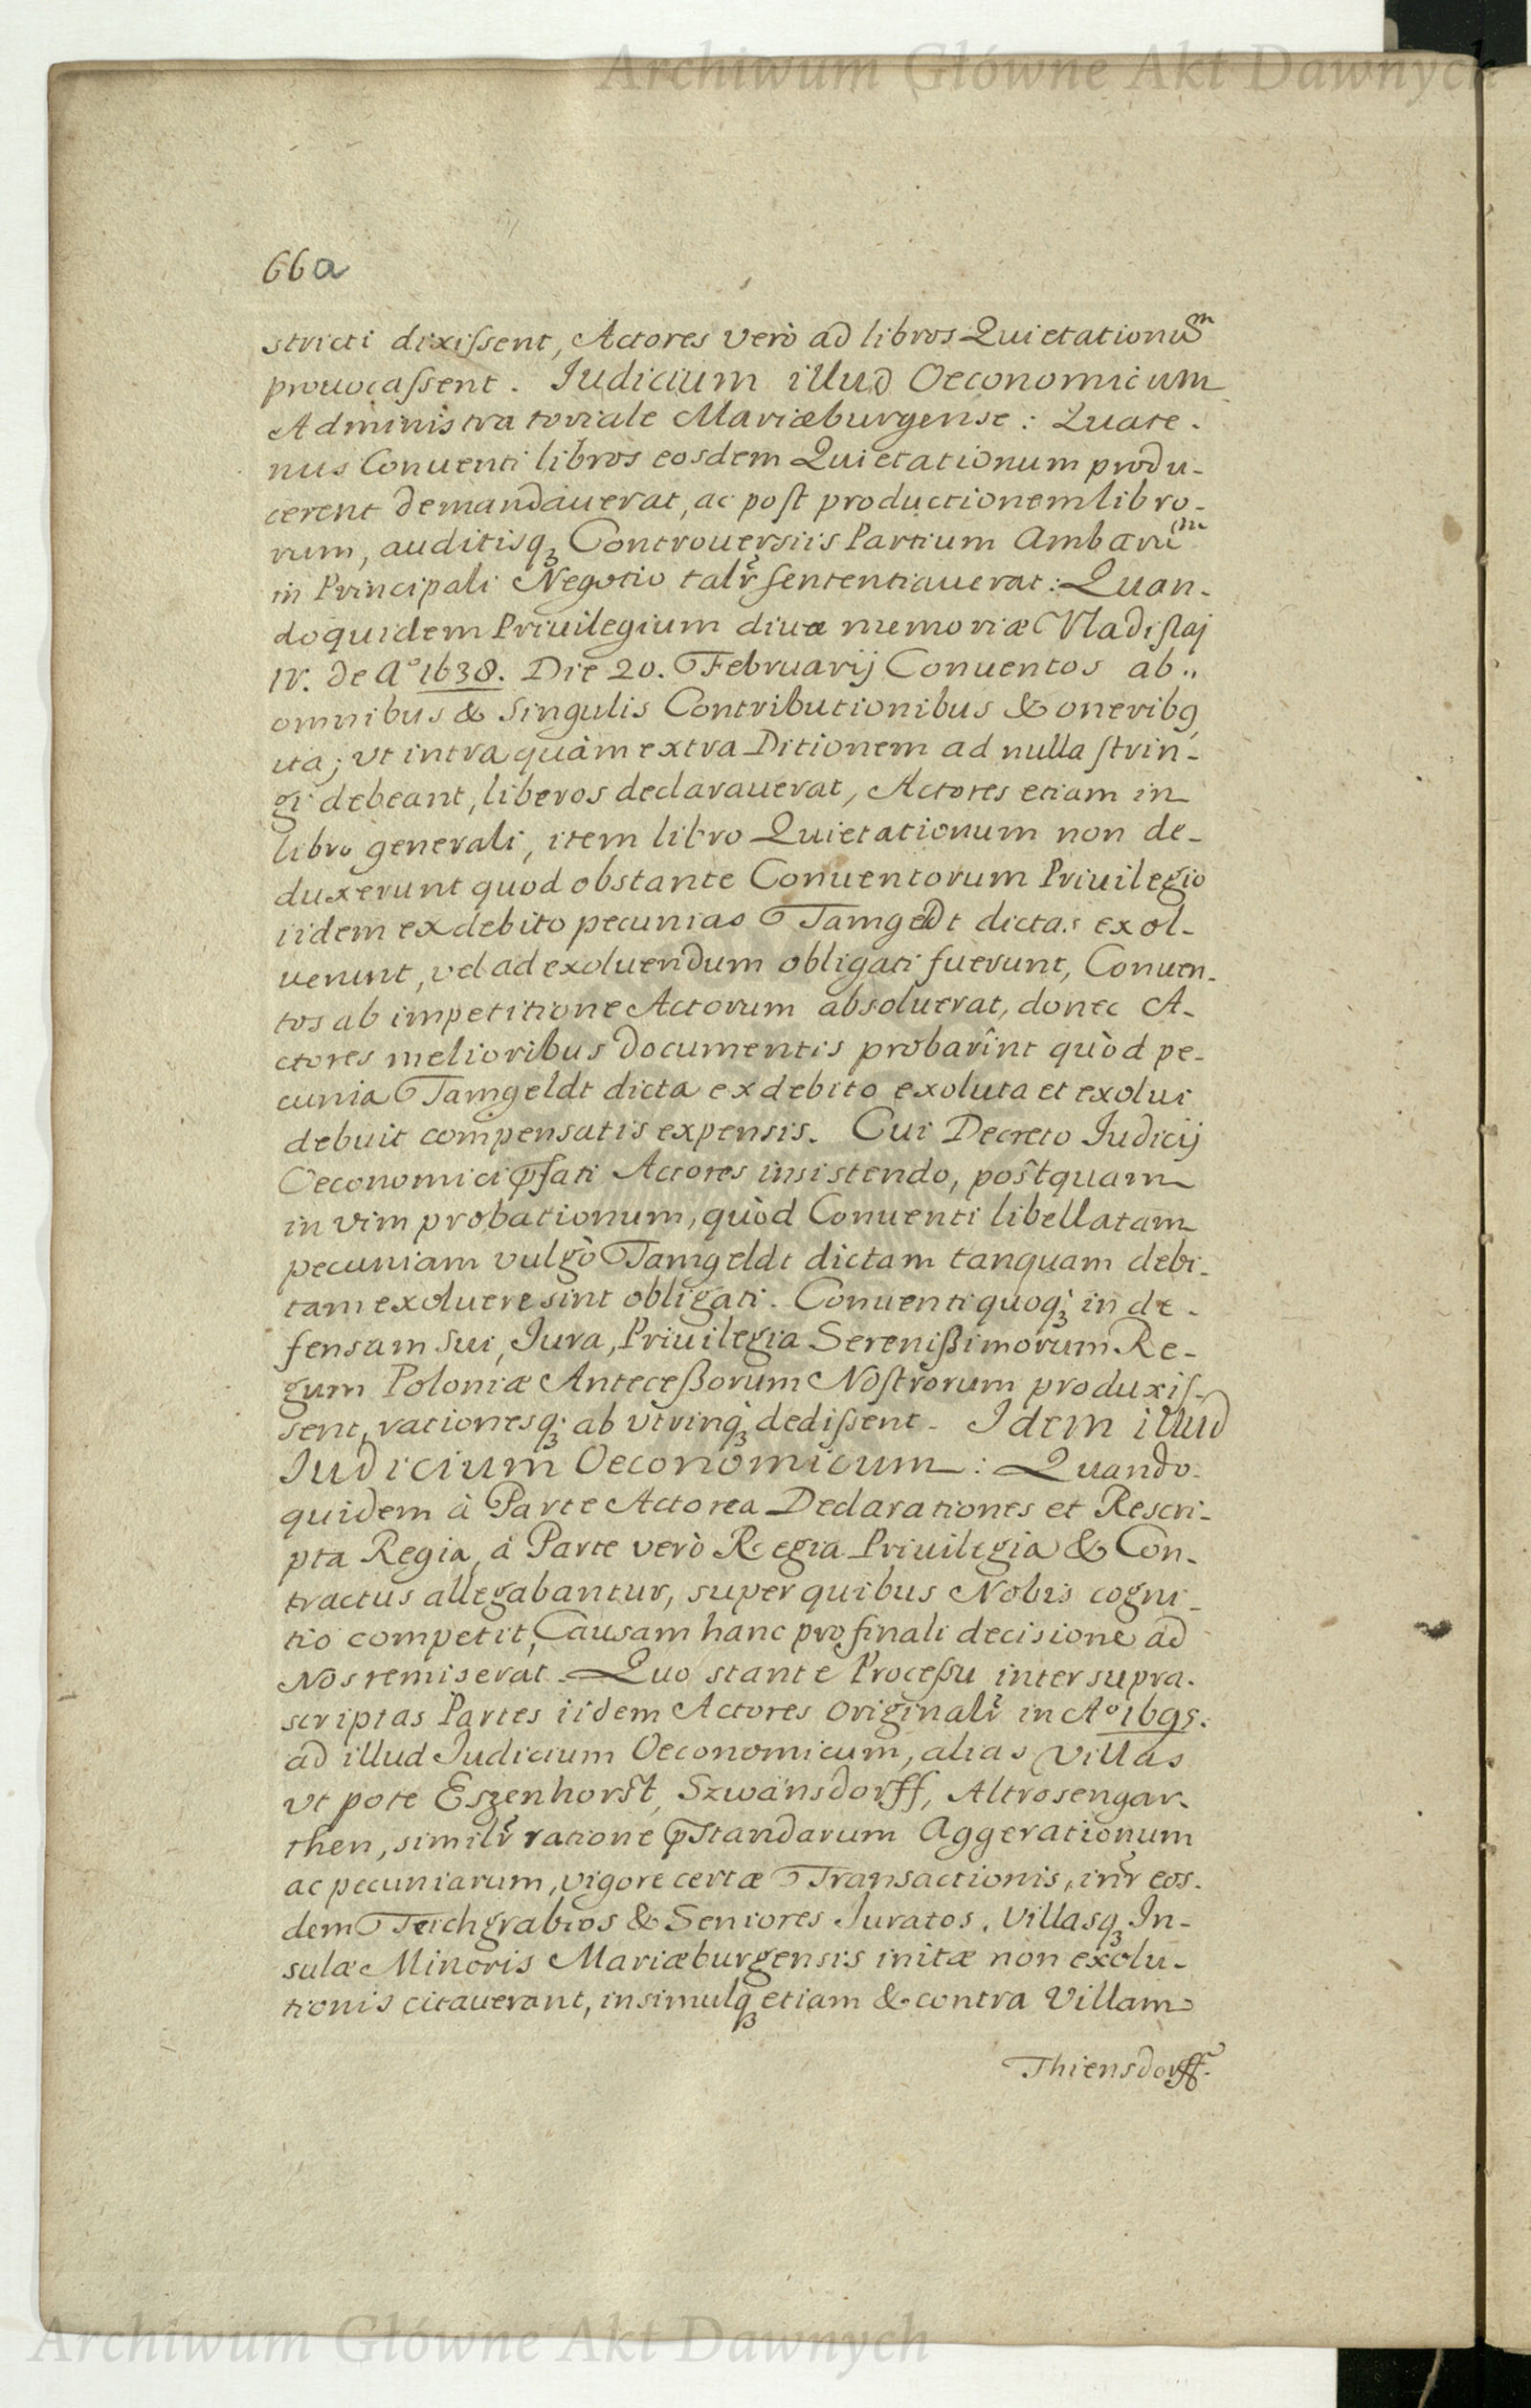 Archiwum Główne Akt Dawnych
66a
stricti dixiſsent, Actores verò ad libros Quietationũm
prouocaſsent. Iudicium illud Oeconomicum
Administratoriale Mariæburgense: Quate-
nus Conuenti libros eosdem Quietationum produ-
cerent demandauerat, ac poſt productionem libro-
rum, auditisqꝫ Controuersiis Partium Ambarũm
in Principali Negotio talr̃ sententiauerat: Quan-
doquidem Priuilegium diuæ memoriæ Vladiſlaj
IV. de Aº 1638. Die 20. Februarij Conuentos ab
omnibus & Singulis Contributionibus & oneribꝰ
ita, vt intra quàm extra Ditionem ad nulla ſtrin-
gi debeant, liberos declarauerat, Actores etiam in
libro generali, item libro Quietationum non de-
duxerunt quod obstante Conuentorum Priuilegio
iidem ex debito pecunias Tamgedt dictas exol-
uerunt, vel ad exoluendum obligati fuerunt, Conuen-
tos ab impetitione Actorum absoluerat, donec A-
ctores melioribus documentis probarînt quòd pe-
cunia Tamgeldt dicta ex debito exoluta et exolui
debuit compensatis expensis. Cui Decreto Iudicij
Oeconomici p̃fati Actores insistendo, poſtquam
in vim probationum, quòd Conuenti libellatam
pecuniam vulgò Tamgeldt dictam tanquam debi-
tam exoluere sint obligati. Conuenti quoqꝫ in de-
fensam Sui, Iura, Priuilegia Sereniſsimorum Re-
gum Poloniæ Anteceſsorum Noſtrorum produxiſ-
sent, rationesqꝫ ab vtrinqꝫ dediſsent. Idem illud
Iudicium Oeconomicum: Quando-
quidem à Parte Actorea Declarationes et Rescri-
pta Regia, à Parte verò Regia Priuilegia & Con-
tractus allegabantur, super quibus Nobis cogni-
tio competit, Causam hanc pro finali decisione ad
Nos remiserat. Quo stante Proceſsu inter supra-
scriptas Partes iidem Actores Originalr̃ in Aº 1695.
ad illud Iudicium Oeconomicum, alias Villas
vt pote Eszenhorſt, Szwansdorff, Altrosengar-
then, similr̃ ratione p̃standarum Aggerationum
ac pecuniarum, vigore certæ Transactionis, intr̃ eos-
dem Teichgrabios & Seniores Iuratos, Villasqꝫ In-
sulæ Minoris Mariæburgensis initæ non exolu-
tionis citauerant, insimulqꝫ etiam & contra Villam
Thiensdorff.
Archiwum Główne Akt Dawnych